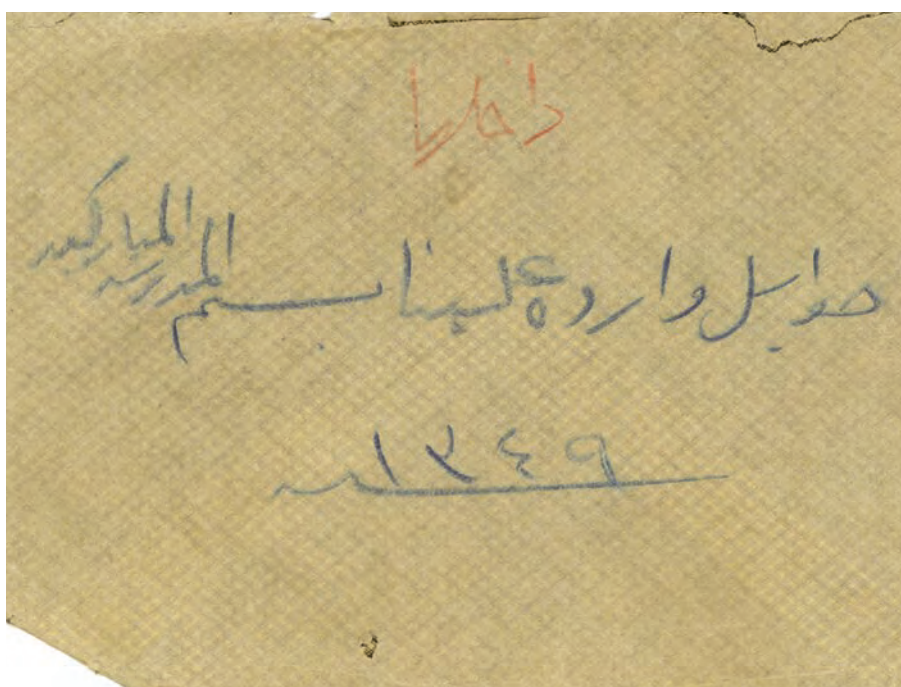 داخلها
حوايل وارده علينا بسم المدرسه المباركيه
سنه ١٣٤٩